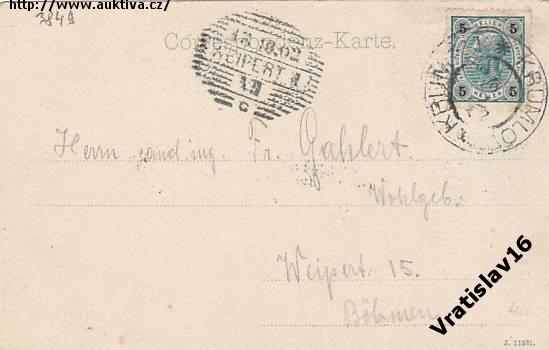 http://www.auktiva.cz/
3849
Correspondenz-Karte.
13.10.02
WEIPERT 1
c
5 HELLER 5
5 HELLER 5
KRUMLOV * KRUM
Herrn cand. ing. Fr. Gahlert.
Wohlgeb.
Weipert 15.
Böhmen
Vratislav16
J. 11981.